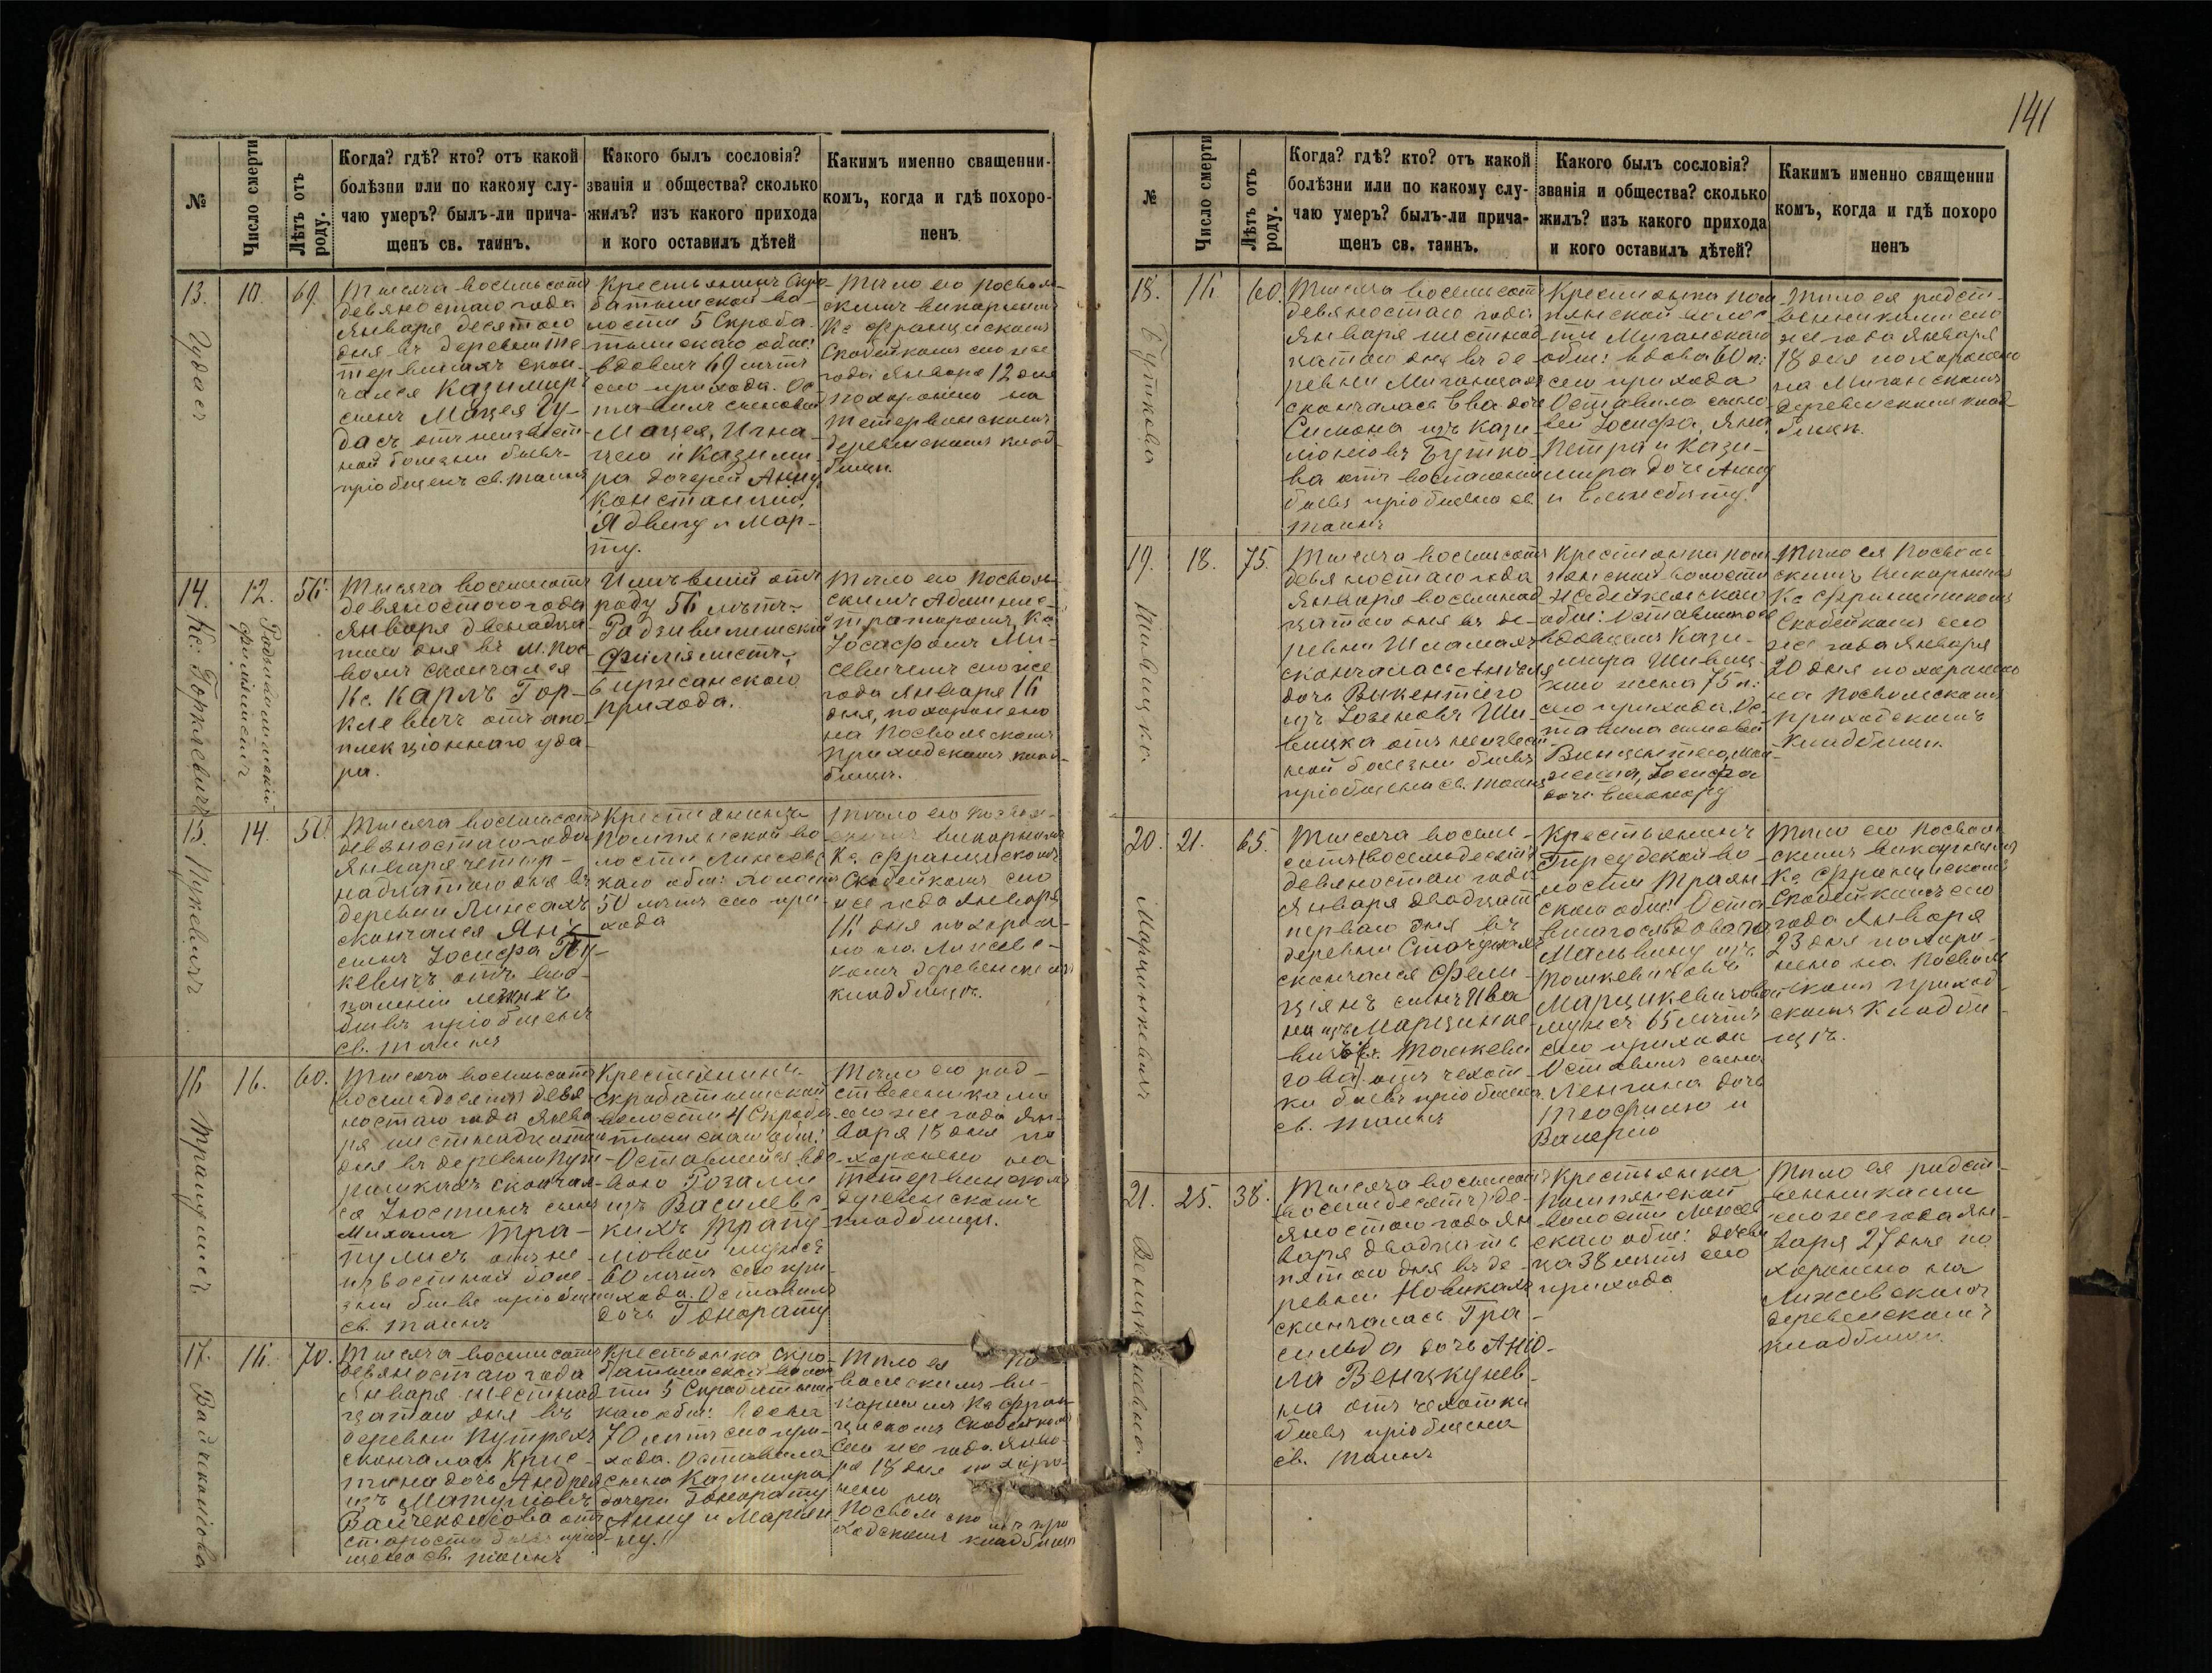 141
№
Число смерти
Лѣтъ отъ роду.
Когда? гдѣ? кто? отъ какой
болѣзни или по какому слу-
чаю умеръ? былъ-ли прича-
щенъ св. таинъ.
Какого былъ сословія?
званія и общества? сколько
жилъ? изъ какого прихода
и кого оставилъ дѣтей
Какимъ именно священни-
комъ, когда и гдѣ похоро-
ненъ
13.
10.
69.
Гудасъ
Тысяча восемьсотъ
девяностаго года
Января десятого
дня въ деревни Те
тервинахъ скон-
чался Казимиръ
сынъ Мацея Гу-
дасъ отъ неизвест-
ной болезни бывъ
пріобщенъ св. таинъ
Крестьянинъ Скро-
батышской во-
лости 5 Скроба-
тышскаго общ:
вдовецъ 69 летъ
сего прихода. Ос
тавилъ сыновей
Мацея, Игна-
цего и Казими-
ра дочерей Анну,
Констанцию,
Ядвигу и Мар-
ту.
Тело его посволь-
скимъ викарнымъ
Кс Францискомъ
Скобейкомъ сего же
года Января 12 дня
похоронено на
Тетервинскомъ
деревенскомъ клад-
бищи.
14.
12.
56.
Кс: Горклевичъ
Радзивилишскій
филіялистъ
Тысяча восемьсотъ
девяностого года
Января двенадца
того дня въ м. Пос
воль скончался
Кс. Карлъ Гор-
клевичъ отъ апо
плекціоннаго уда-
ра.
Имѣвшій отъ
роду 56 лѣтъ
Радзивилишскій
Филіялистъ,
Биржанского
прихода.
Тело его Посволь-
скимъ Админис-
траторомъ Кс
Іосафомъ Ми-
севичемъ сего же
года Января 16
дня, похоронено
на Посвольскомъ
приходскомъ клад-
бищи.
15.
14.
50.
Пукевичъ
Тысяча восемьсотъ
девяностаго года
Января четыр-
надцатого дня въ
деревни Линсахъ
скончался Янъ
сынъ Іосифа Пу-
кевичъ отъ вос-
паленія легкихъ
бывъ пріобщенъ
св. таинъ
Крестьянинъ
Помпянской во
лости
каго общ: холостъ
50 летъ сего при-
хода
Тело его посволь-
скимъ викарнымъ
Кс Францискомъ
Скобейкомъ сего
же года Января
16 дня похороне-
но на
комъ деревенскомъ
кладбищи.
16
16.
60.
Трапулисъ
Тысяча восемьсотъ
(восемьдесятъ) девя-
ностаго года Янва-
ря шестнадцатого
дня въ деревни
скончал-
ся Іюстинъ сынъ
Михаила Тра-
пулисъ отъ не-
извѣстной боле-
зни бывъ пріобщенъ
св. таинъ
Крестьянинъ
Скробатышской
волости 4 Скроба-
тышскаго общ:
Оставшійся вдо-
вою Розаліи
изъ Василевс-
кихъ Трапу-
ловой мужъ
60 летъ сего при-
хода. Оставилъ
дочь Гонорату
Тело его род-
ственниками
сего же года Ян-
варя 18 дня по
хоронено на
Тетервинскомъ
деревенскомъ
кладбищи.
17.
16.
70.
Вайчеконіова
Тысяча восемьсотъ
девяностаго года
Января шестнад
цатого дня въ
деревни Путряхъ
скончалась Крис-
тина дочь Андрея
изъ Матуліовъ
Вайчеконіова отъ
старости бывъ пріоб-
щена св. таинъ
Крестьянка Скро-
батышской волос
ти 5 Скробатышс
каго общ: вдова
70 летъ сего при-
хода. Оставила
сына Казимира
дочери Гонорату
Анну и Марьян
ну.
Тело ея По
вольскимъ ви-
карнымъ Кс Фран
цискомъ Скобейкомъ
сего же года Янва-
ря 18 дня похоро-
нено на
Посвольскомъ при
ходскомъ кладбищи
№
Число смерти
Лѣтъ отъ роду.
Когда? гдѣ? кто? отъ какой
болѣзни или по какому слу-
чаю умеръ? былъ-ли прича-
щенъ св. таинъ.
Какого былъ сословія?
званія и общества? сколько
жилъ? изъ какого прихода
и кого оставилъ дѣтей?
Какимъ именно священни
комъ, когда и гдѣ похоро
ненъ
18.
16
60.
Буткова
Тысяча восемьсотъ
девяностаго года
Января шестнад
цатого дня въ де
ревни
скончалась Ева дочь
Симона изъ Кази-
моніовъ Бутко-
ва отъ воспаленія
бывъ пріобщена св
таинъ
Крестьянка Пом
пянской волос
ти
общ: вдова 60 л:
сего прихода
Оставила сыно
вей Іосифа, Яна,
Петра и Кази-
мира дочь Анну
и Ельжебету.
Тело ея родст-
венниками сего
же года Января
18 дня похоронено
на
деревенскомъ клад
бищи.
19.
18.
75.
Шивицка.
Тысяча восемьсотъ
девяностаго года
Января восемнад
цатого дня въ де-
ревни
скончалась Ангеля
дочь Викентіего
изъ Іозеновъ Ши-
вицка отъ неизвест
ной болезни бывъ
пріобщена св. таинъ
Крестьянка Пом
пянской волости
общ: Оставшагося
вдовцемъ Кази-
мира Шивиц-
каго жена 75 л:
сего прихода. Ос-
тавила сыновей
Винцентего,
Іосифа
дочь Елеонору
Тело ея Посволь
скимъ Викарнымъ
Кс Францискомъ
Скобейкомъ сего
же года Января
20 дня похоронено
на Посвольскомъ
приходскомъ
кладбищи.
20.
21.
65.
Марцинкевичъ
Тысяча восемь-
сотъ (восемьдесятъ)
девяностаго года
Января двадцать
перваго дня въ
деревни
скончался Фели-
ціянъ сынъ Ива
на изъ Марцинке-
вичъ
отъ чахот-
ки бывъ пріобщенъ
св. таинъ
Крестьянинъ
Гирсудской во
лости Траян-
скаго общ: Оста
вшагося вдовою
Мальвину изъ
Томкевичовъ
Марцинкевичовой
мужъ 65 летъ
сего прихода
Оставилъ сына
Лонгина дочь
Теофилю и
Валерію
Тело его Посволь
скимъ викарнымъ
Кс Францискомъ
Скобейкомъ сего
года Января
23 дня похоро-
нено на Посволь
скомъ приход
скомъ кладби
щѣ.
21.
25.
38.
Тысяча восемьсотъ
(восемьдесятъ) де-
вяностаго года Ян
варя двадцать
пятого дня въ де-
ревни Новикахъ
скончалась Гра-
сильда дочь Аніо-
ла Венцкунев-
на отъ чахотки
бывъ пріобщена
св. таинъ
Крестьянка
Помпянской
волости
скаго общ: деви
ца 38 летъ сего
прихода
Тело ея родст-
венниками
сего же года Ян-
варя 27 дня по
хоронено на
деревенскомъ
кладбищи.